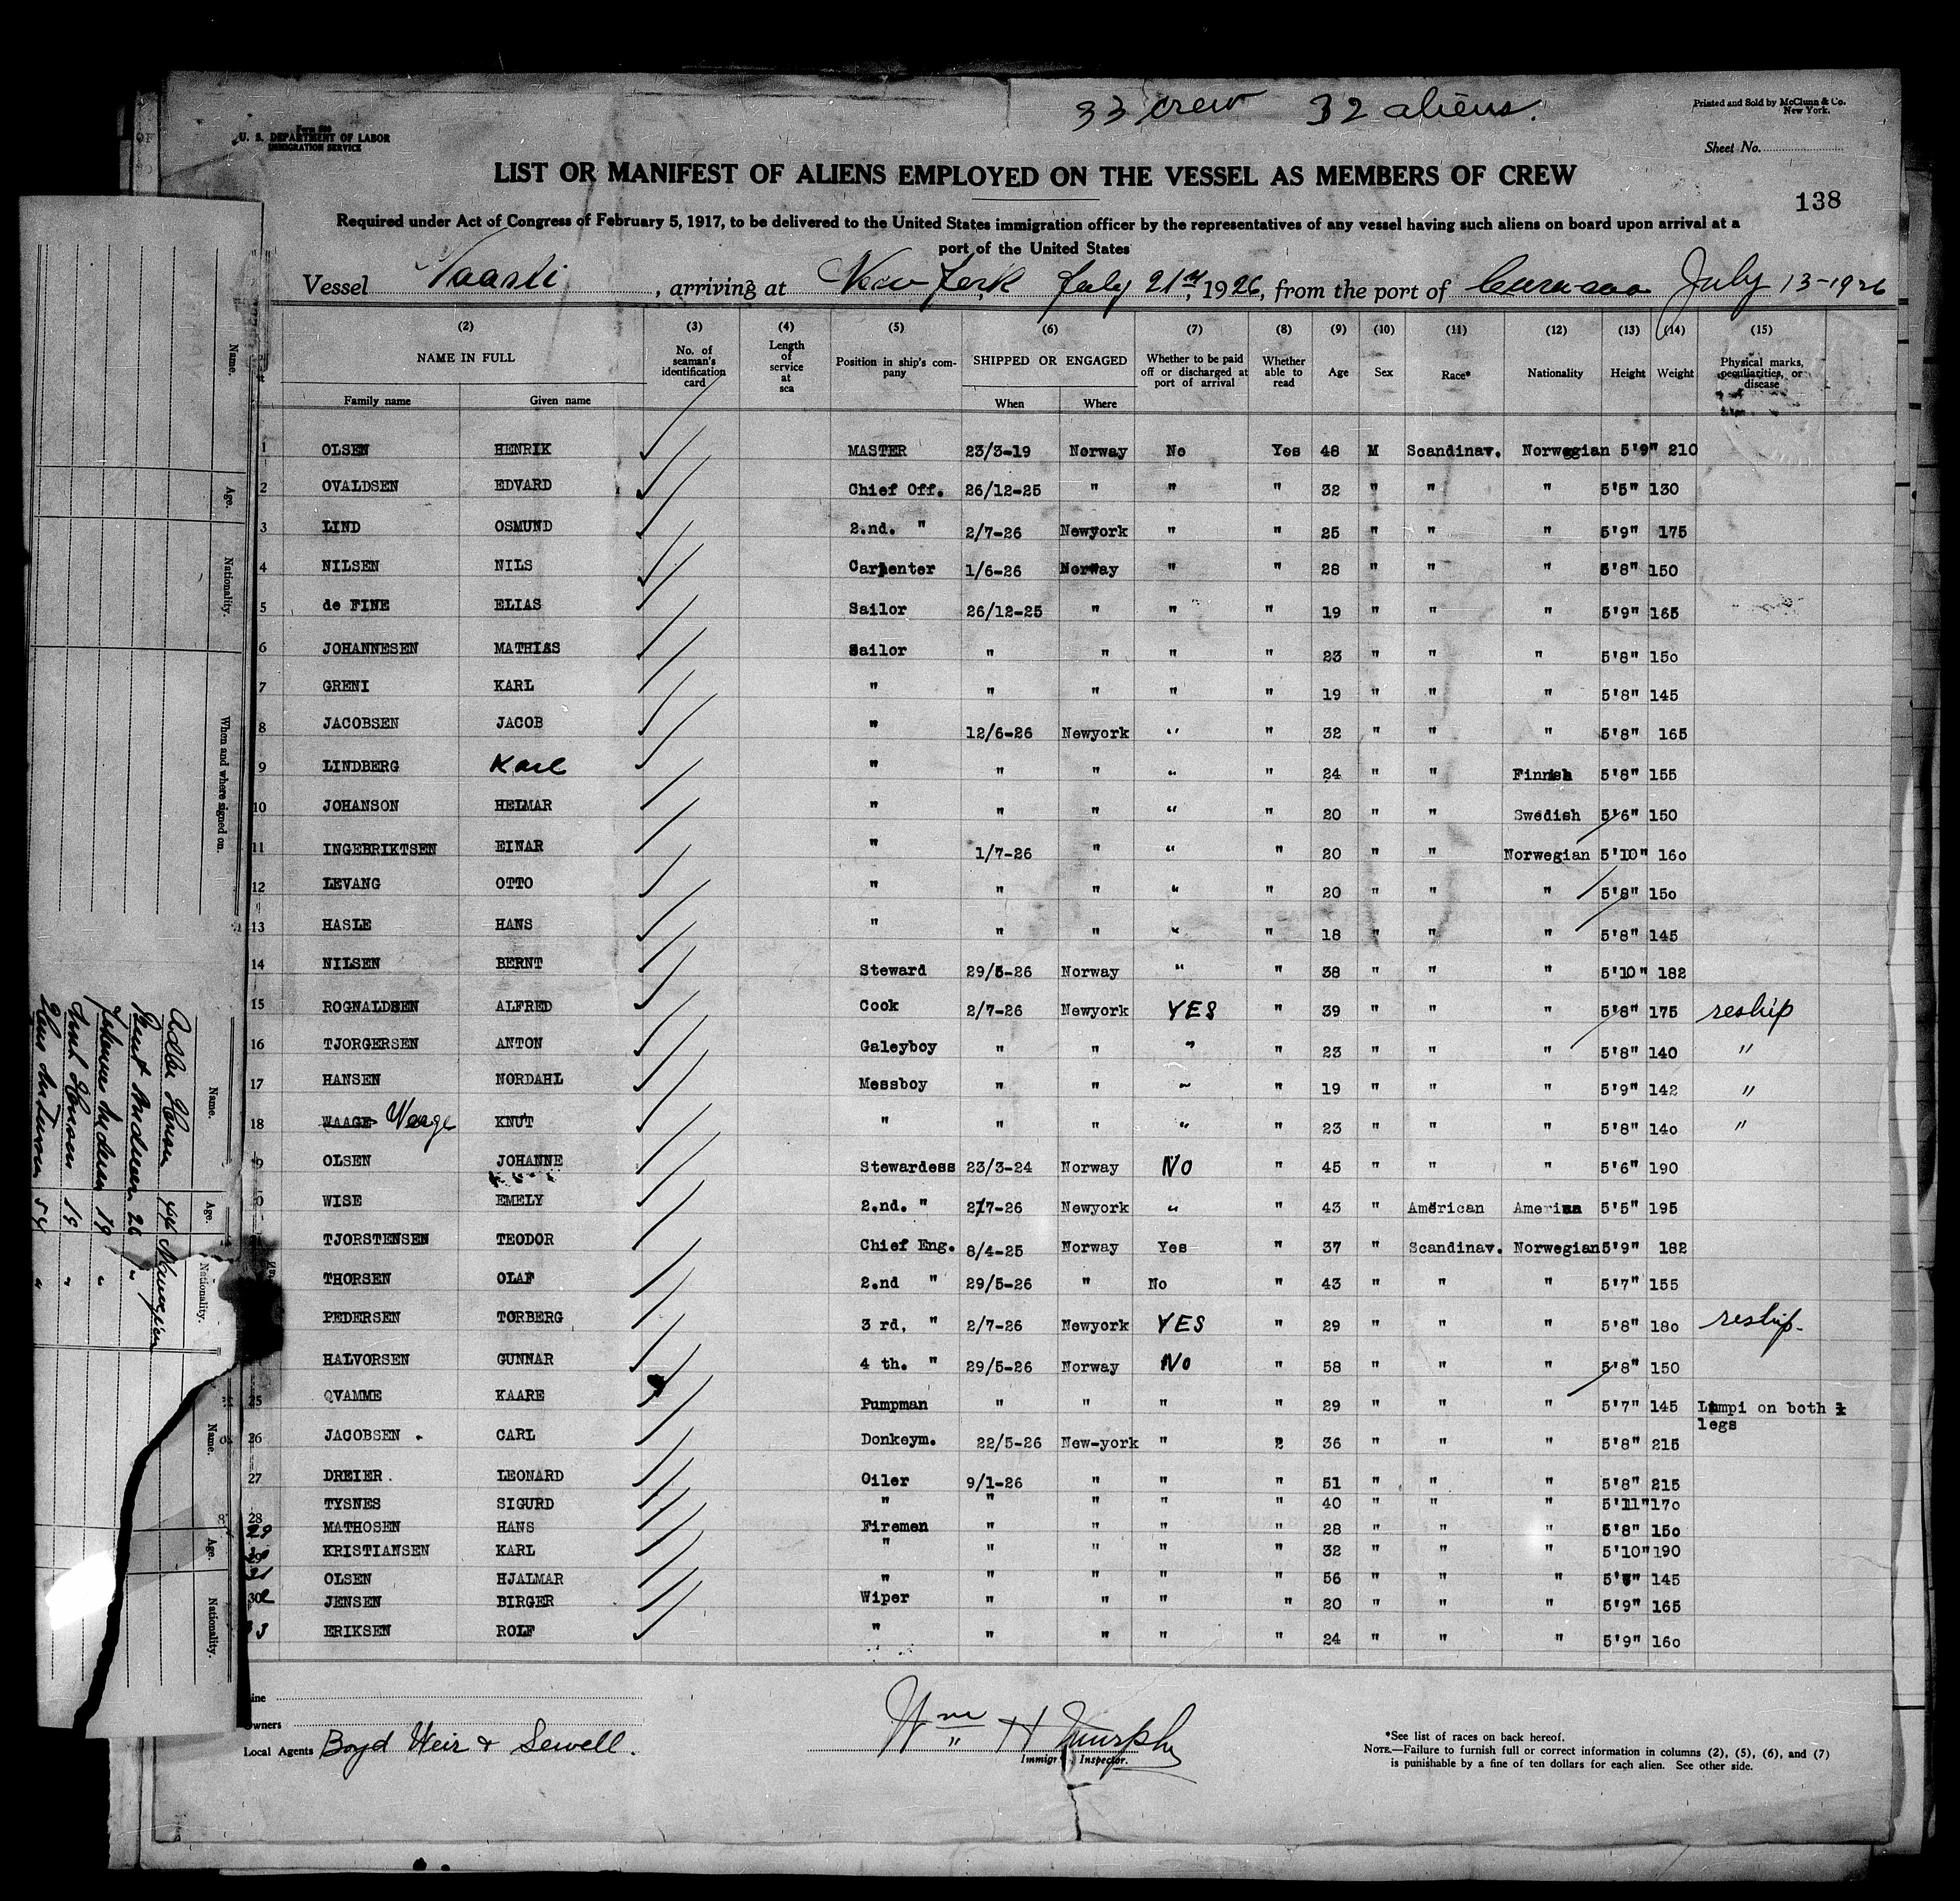 33 crew 32 aliens.
Printed and Sold by McClunn & Co.
New York.
U. S. DEPARTMENT OF LABOR
IMMIGRATION SERVICE
Sheet No.
LIST OR MANIFEST OF ALIENS EMPLOYED ON THE VESSEL AS MEMBERS OF CREW
138
Required under Act of Congress of February 5, 1917, to be delivered to the United States immigration officer by the representatives of any vessel having such aliens on board upon arrival at a
port of the United States
Vessel , arriving at New York July 21st, 1926, from the port of Curacao July 13-1926
(2) (3) (4) (5) (6) (7) (8) (9) (10) (11) (12) (13) (14) (15)
NAME IN FULL No. of seaman's identification card Length of service at sea Position in ship's company SHIPPED OR ENGAGED Whether to be paid off or discharged at port of arrival Whether able to read Age Sex Race* Nationality Height Weight Physical marks, peculiarities, or disease
Family name Given name When Where
1 OLSEN HENRIK MASTER 23/3-19 Norway No Yes 48 M Scandinav. Norwegian 5'9" 210
2 OVALDSEN EDVARD Chief Off. 26/12-25 " " " 32 " " " 5'5" 130
3 LIND OSMUND 2.nd. " 2/7-26 Newyork " " 25 " " " 5'9" 175
4 NILSEN NILS Carpenter 1/6-26 Norway " " 28 " " " 5'8" 150
5 de FINE ELIAS Sailor 26/12-25 " " " 19 " " " 5'9" 165
6 JOHANNESEN MATHIAS Sailor " " " " 23 " " " 5'8" 150
7 GRENI KARL " " " " " 19 " " " 5'8" 145
8 JACOBSEN JACOB " 12/6-26 Newyork " " 32 " " " 5'8" 165
9 LINDBERG Karl " " " " " 24 " " Finnish 5'8" 155
10 JOHANSON HELMAR " " " " " 20 " " Swedish 5'6" 150
11 INGEBRIKTSEN EINAR " 1/7-26 " " " 20 " " Norwegian 5'10" 160
12 LEVANG OTTO " " " " " 20 " " " 5'8" 150
13 HASLE HANS " " " " " 18 " " " 5'8" 145
14 NILSEN BERNT Steward 29/5-26 Norway " " 38 " " " 5'10" 182
15 ROGNALDSEN ALFRED Cook 2/7-26 Newyork YES " 39 " " " 5'8" 175 reship
16 TJORGERSEN ANTON Galeyboy " " " " 23 " " " 5'8" 140 "
17 HANSEN NORDAHL Messboy " " " " 19 " " " 5'9" 142 "
18 WAAGE Waage KNUT " " " " " 23 " " " 5'8" 140 "
9 OLSEN JOHANNE Stewardess 23/3-24 Norway NO " 45 " " " 5'6" 190
0 WISE EMELY 2.nd. " 2/7-26 Newyork " " 43 " American 5'5" 195
TJORSTENSEN TEODOR Chief Eng. 8/4-25 Norway Yes " 37 " Scandinav. Norwegian 5'9" 182
THORSEN OLAF 2.nd " 29/5-26 " No " 43 " " " 5'7" 155
PEDERSEN TORBERG 3 rd, " 2/7-26 Newyork YES " 29 " " " 5'8" 180 reship.
HALVORSEN GUNNAR 4 th. " 29/5-26 Norway NO " 58 " " " 5'8" 150
25 QVAMME KAARE Pumpman " " " " 29 " " " 5'7" 145 Lumpi on both
legs
26 JACOBSEN CARL Donkeym. 22/5-26 New-york " " 36 " " " 5'8" 215
27 DREIER. LEONARD Oiler 9/1-26 " " " 51 " " " 5'8" 215
28 TYSNES SIGURD " " " " " 40 " " " 5'11" 170
29 MATHOSEN HANS Firemen " " " " 28 " " " 5'8" 150
KRISTIANSEN KARL " " " " " 32 " " " 5'10" 190
OLSEN HJALMAR " " " " " 56 " " " 145
JENSEN BIRGER Wiper " " " " 20 " " " 5'9" 165
ERIKSEN ROLF " " " " " 24 " " " 5'9" 160
Line
Owners
Local Agents Boyd Weir & Sewell.
Wm H Murphy
Immigrant Inspector.
*See list of races on back hereof.
NOTE.—Failure to furnish full or correct information in columns (2), (5), (6), and (7)
is punishable by a fine of ten dollars for each alien. See other side.
Name.
Age.
Nationality.
When and where signed on.
Name.
Age.
Nationality.
Hansen 44 Norwegian
Bernt Andersen 26 "
Johannes Andersen 19 "
Hansen 19 "
Hans 54 "
Name.
Age.
Nationality.